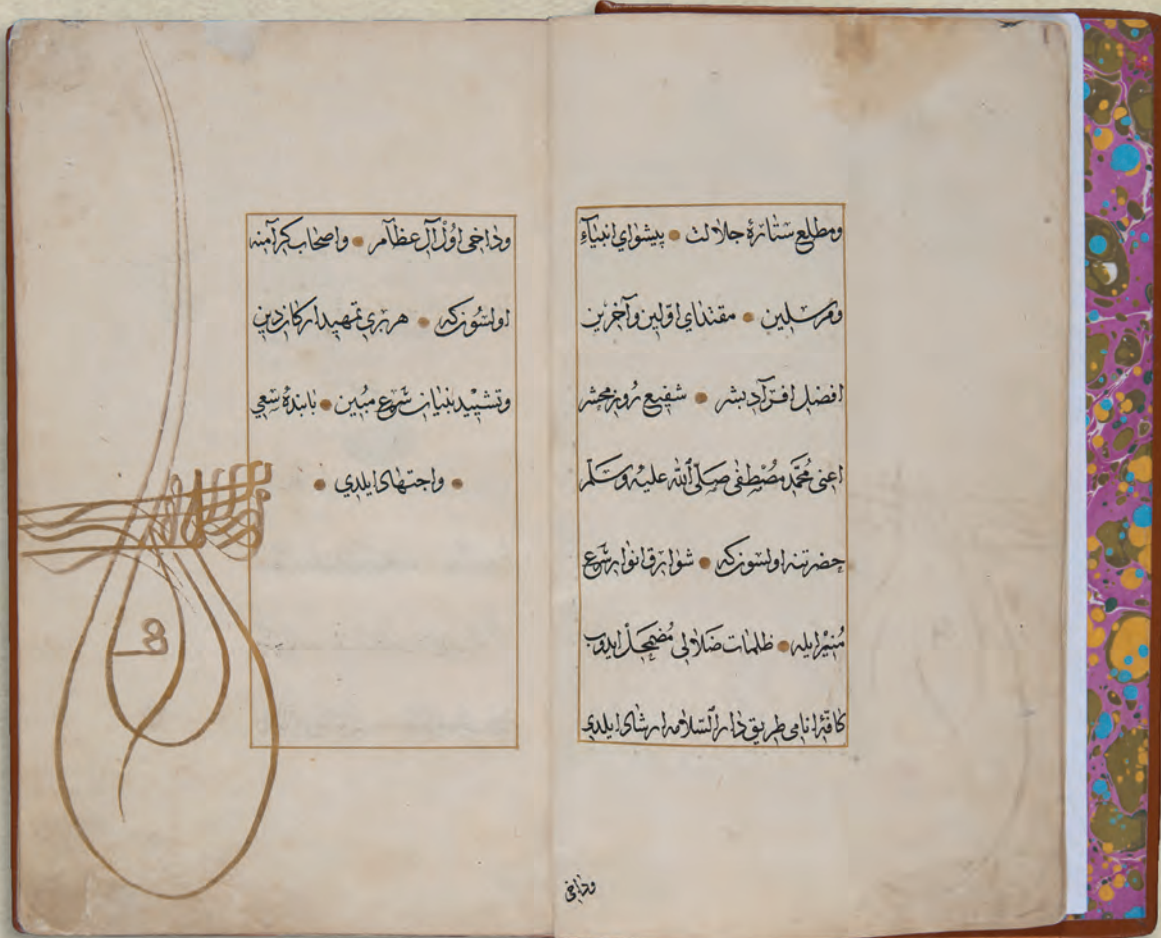 ومطلع ستارهٔ جلالت ● پيشواي انبياء
ومرسلين ● مقتداي اوّلين وآخرين
افضل افراد بشر ● شفيع روز محشر
اعني مُحمّد مُصْطفٰى صلّى ٱللّٰه عليه وسلّم
حضرتنه اولسونكه ● شوارق انوار شرع
مُنير ايله ● ظلمات ضلالى مُضمحلّ ايدوب
كافّهٔ انامى طريق دار السّلامه ارشاد ايلدي
وداخى
وداخى اول آل عظام ● واصحاب كرامنه
اولسونكه ● هر برى تمهيد اركان دين
وتشييد بنيان شرع مبين ● بابنده سعي
● واجتهاد ايلدي ●